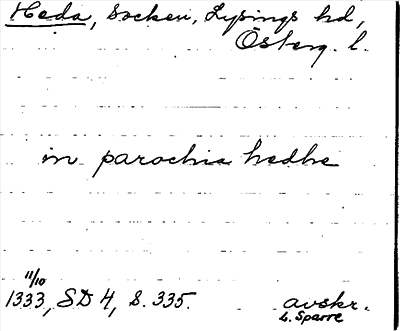 Heda, socken, Lysings hd,
Österg. l.
in parochia hedhe
11/10
1333, SD 4, s. 335. avskr.
L. Sparre